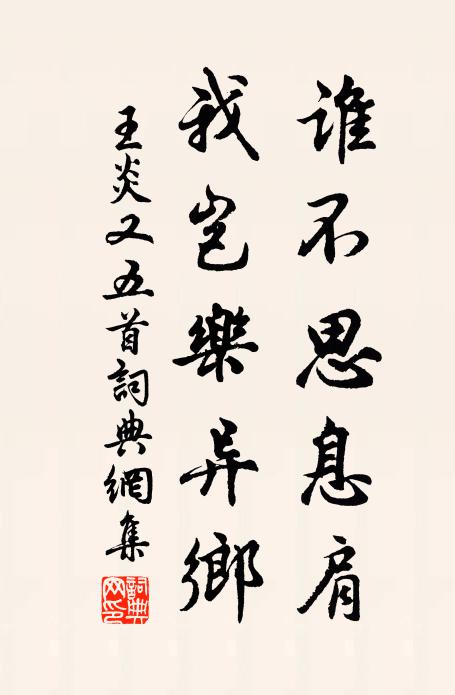 誰不思息肩
我豈樂异鄉
王炎又五首詞典網集
詞典
网印